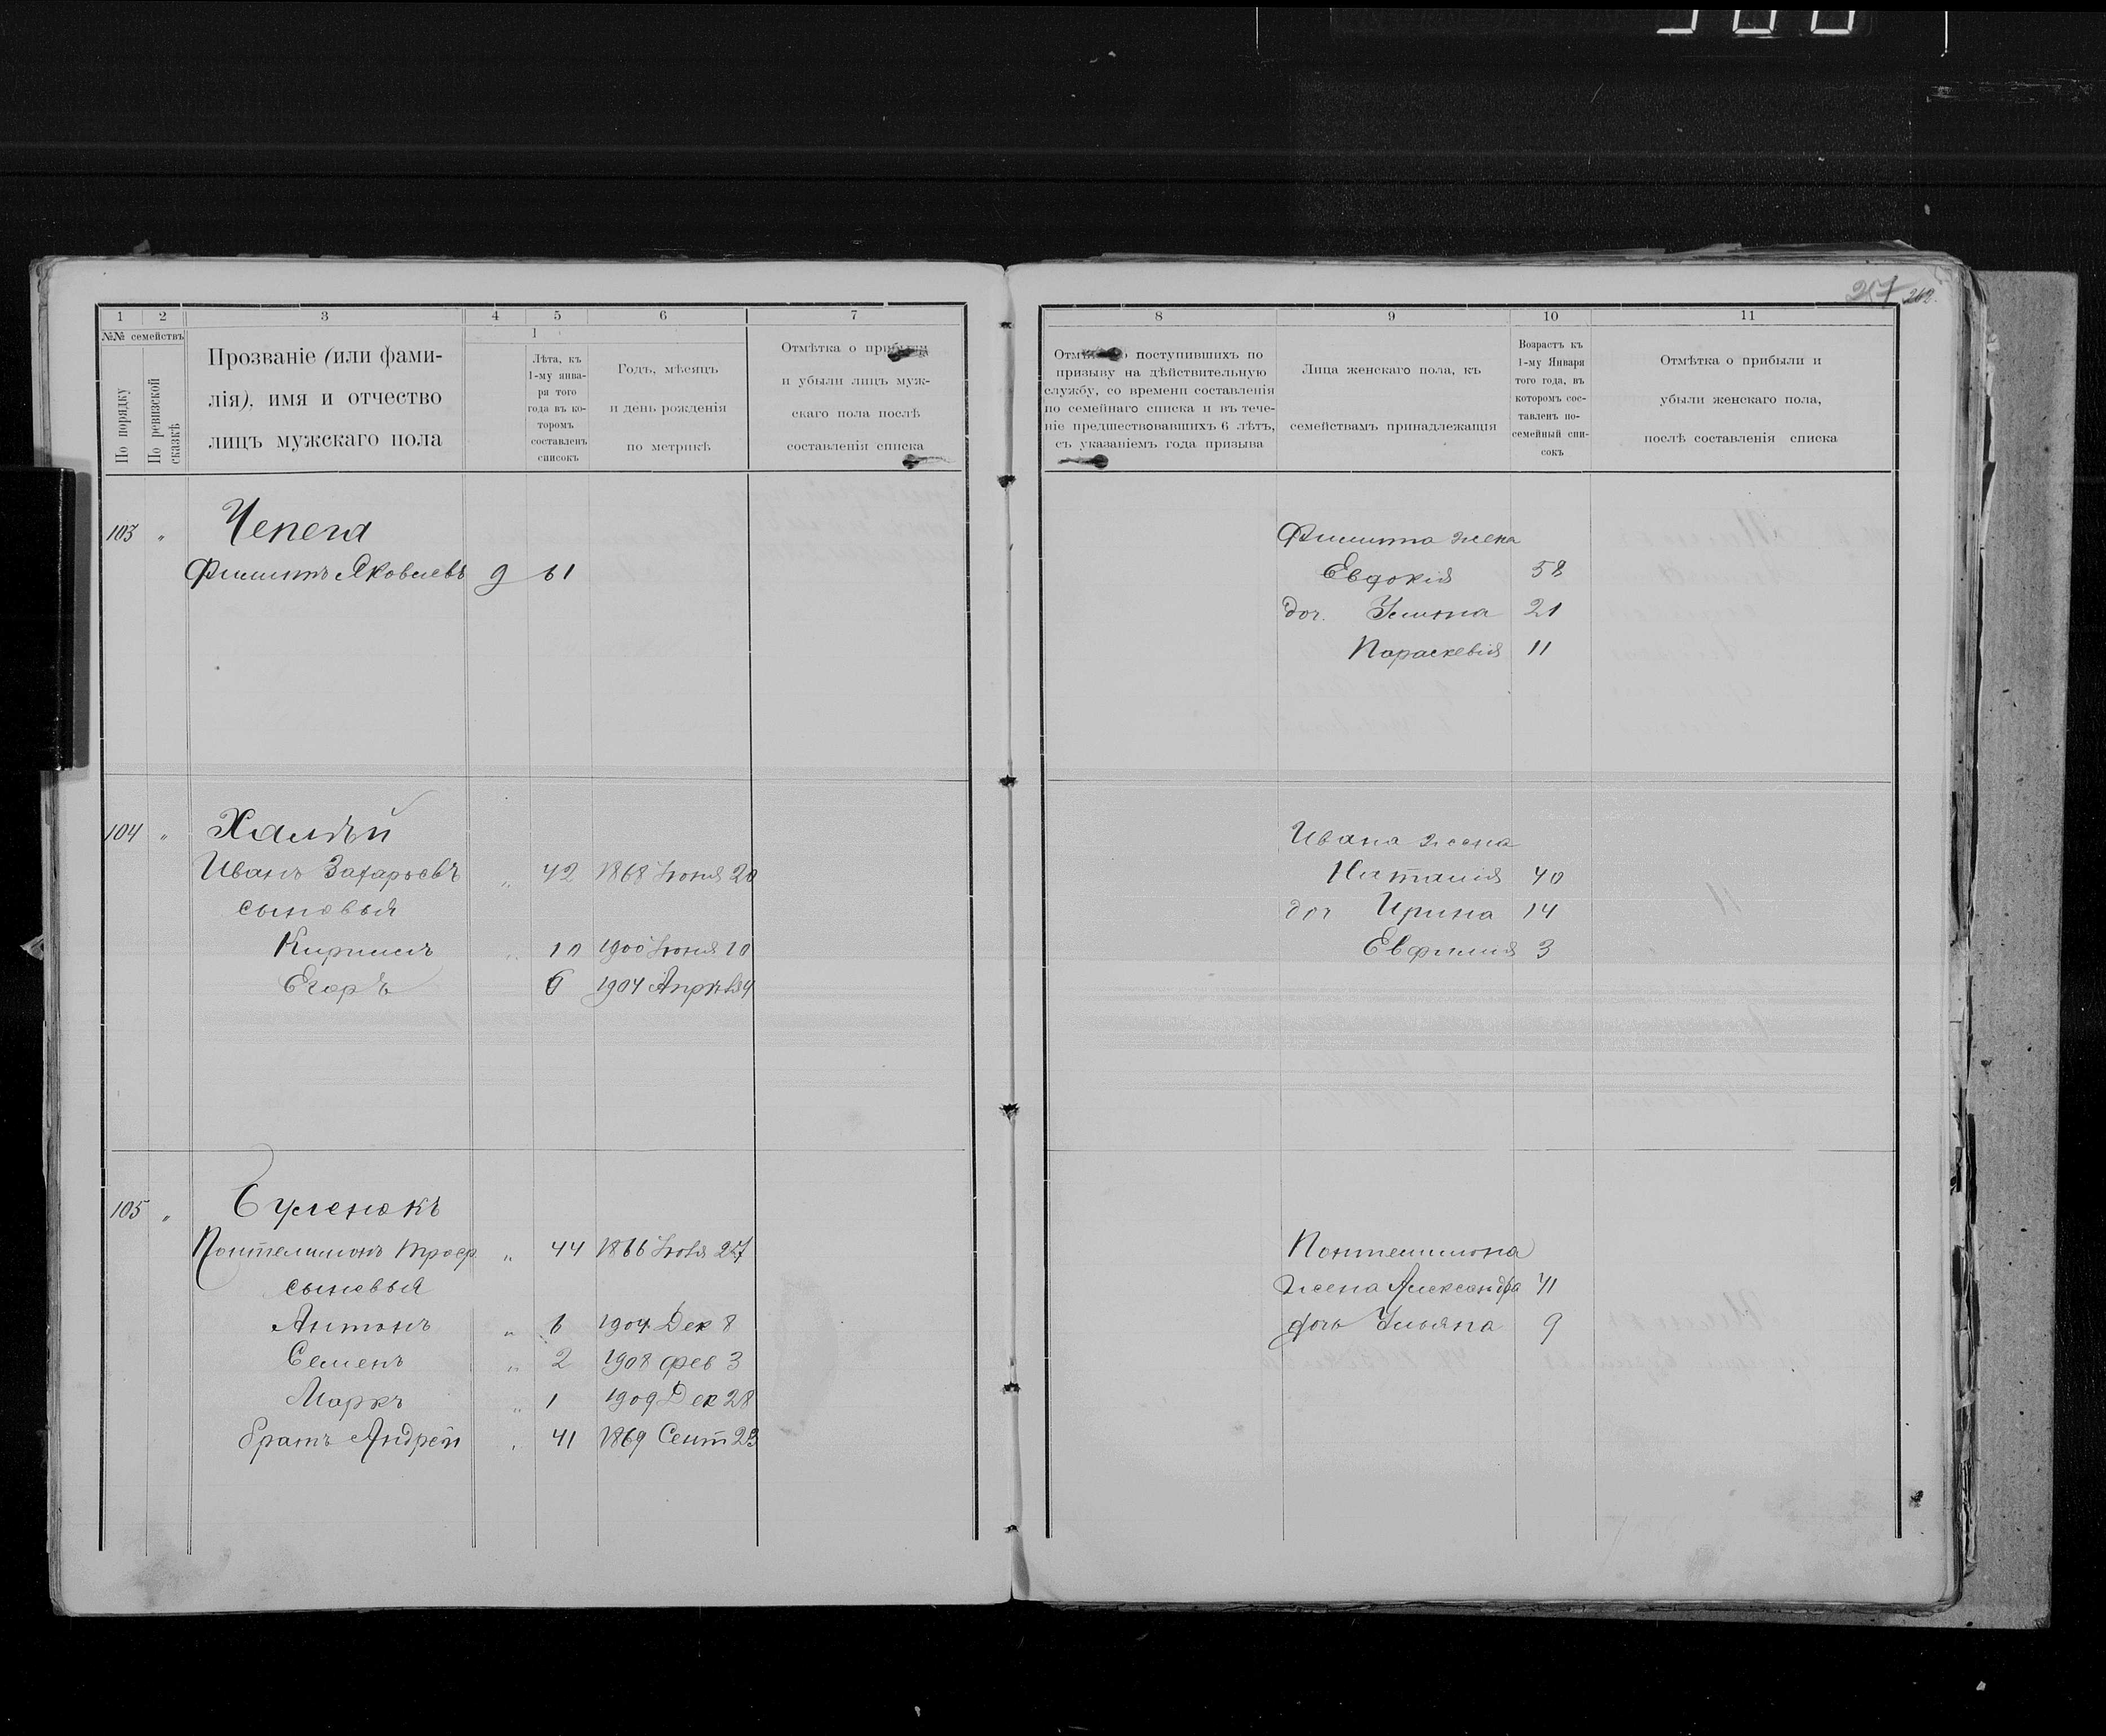 257 262.
1 2 3 4 5 6 7
№№ семействъ
По порядку
По ревизской сказкѣ
Прозваніе (или фами-
лія), имя и отчество
лицъ мужскаго пола
1
Лѣта, къ
1-му янва-
ря того
года въ ко-
торомъ
составленъ
списокъ
Годъ, мѣсяцъ
и день рожденія
по метрикѣ
Отмѣтка о прибыли
и убыли лицъ муж-
скаго пола послѣ
составленія списка
103 „ Чепега
Филиппъ Яковлевъ 9 61
104 „ Халѣй
Иванъ Захарьевъ „ 42 1868 Іюня 20
сыновья
Кириллъ „ 10 1900 Іюня 10
Егоръ 6 1904 Апрѣля
105 „
Пантелимонъ Троф „ 44 1866 Іюля 27
сыновья
Антонъ „ 6 1904 Дек 8
Семенъ „ 2 1908 фев 3
Маркъ „ 1 1909 Дек 28
братъ Андрей „ 41 1869 Сент 23
8 9 10 11
Отмѣтка о поступившихъ по
призыву на дѣйствительную
службу, со времени составленія
по семейнаго списка и въ тече-
ніе предшествовавшихъ 6 лѣтъ,
съ указаніемъ года призыва
Лица женскаго пола, къ
семействамъ принадлежащія
Возрастъ къ
1-му Января
того года, въ
которомъ сос-
тавленъ по-
семейный спи-
сокъ
Отмѣтка о прибыли и
убыли женскаго пола,
послѣ составленія списка
Филиппа жена
Евдокія 58
доч. 21
Параскевія 11
Ивана жена
Наталія 40
доч Ирина 14
Евфимія 3
Пантелимона
жена Александра 41
дочь Ульяна 9